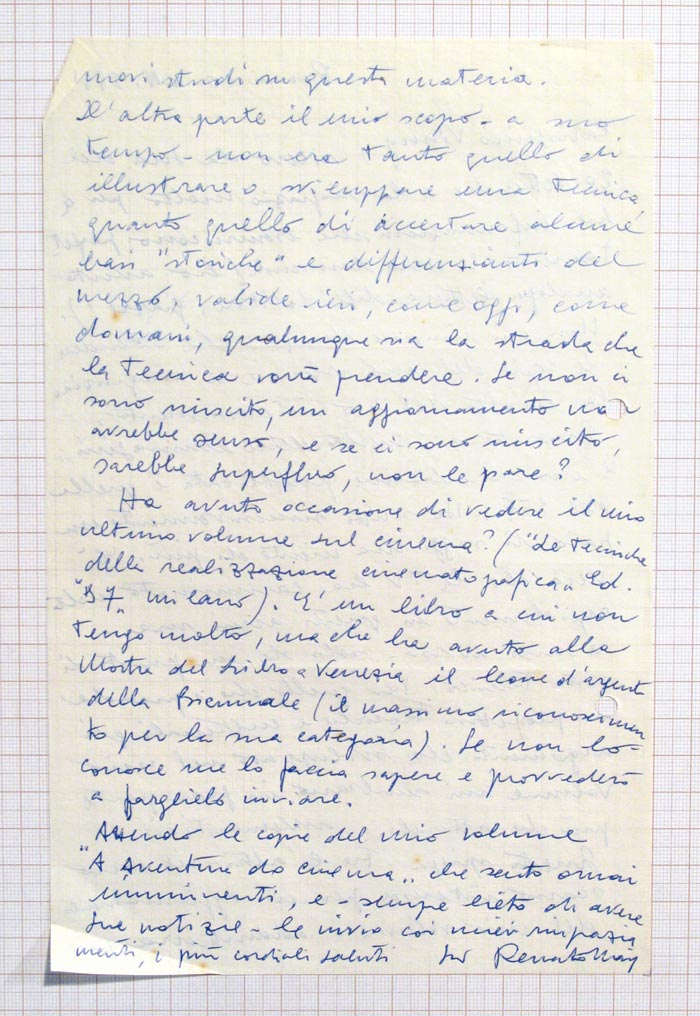 nuovi studi su questa materia.
D'altra parte il mio scopo - a suo
tempo - non era tanto quello di
illustrare o sviluppare una tecnica
quanto quello di accertare alcune
basi "storiche" e differenzianti del
mezzo, valide ieri, come oggi, come
domani, qualunque sia la strada che
la tecnica vorrà prendere. Se non ci
sono riuscito, un aggiornamento non
avrebbe senso, e se ci sono riuscito,
sarebbe superfluo, non le pare?
Ha avuto occasione di vedere il mio
ultimo volume sul cinema? ("Le tecniche
della realizzazione cinematografica" Ed.
"57" Milano). E' un libro a cui non
tengo molto, ma che ha avuto alla
Mostra del Libro a Venezia il leone d'argento
della Biennale (il massimo riconoscimen
to per la sua categoria). Se non lo
conosce me lo faccia sapere e provvederò
a farglielo inviare.
Attendo le copie del mio volume
"A aventura do cinema", che sento ormai
imminenti, e - sempre lieto di avere
sue notizie - le invio coi miei ringrazia
menti, i più cordiali saluti Renato May